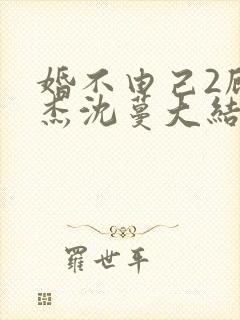 婚不由己2
杰沈蔓大結
羅世平